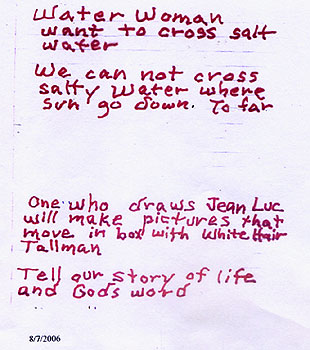 Water Woman
want to cross salt
water
We can not cross
salty water where
sun go down. To far
One who draws Jean Luc
will make pictures that
move in box with White Hair
Tallman
Tell our story of life
and Gods word
8/7/2006